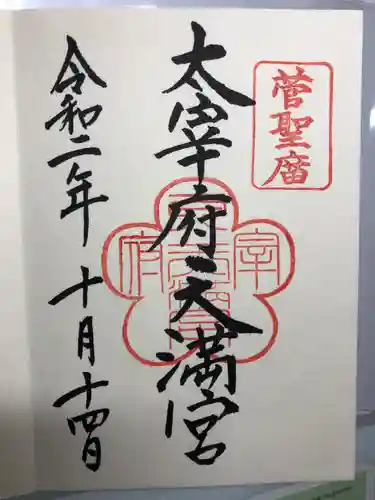 菅聖廟
太宰府天満宮
令和二年十月十四日